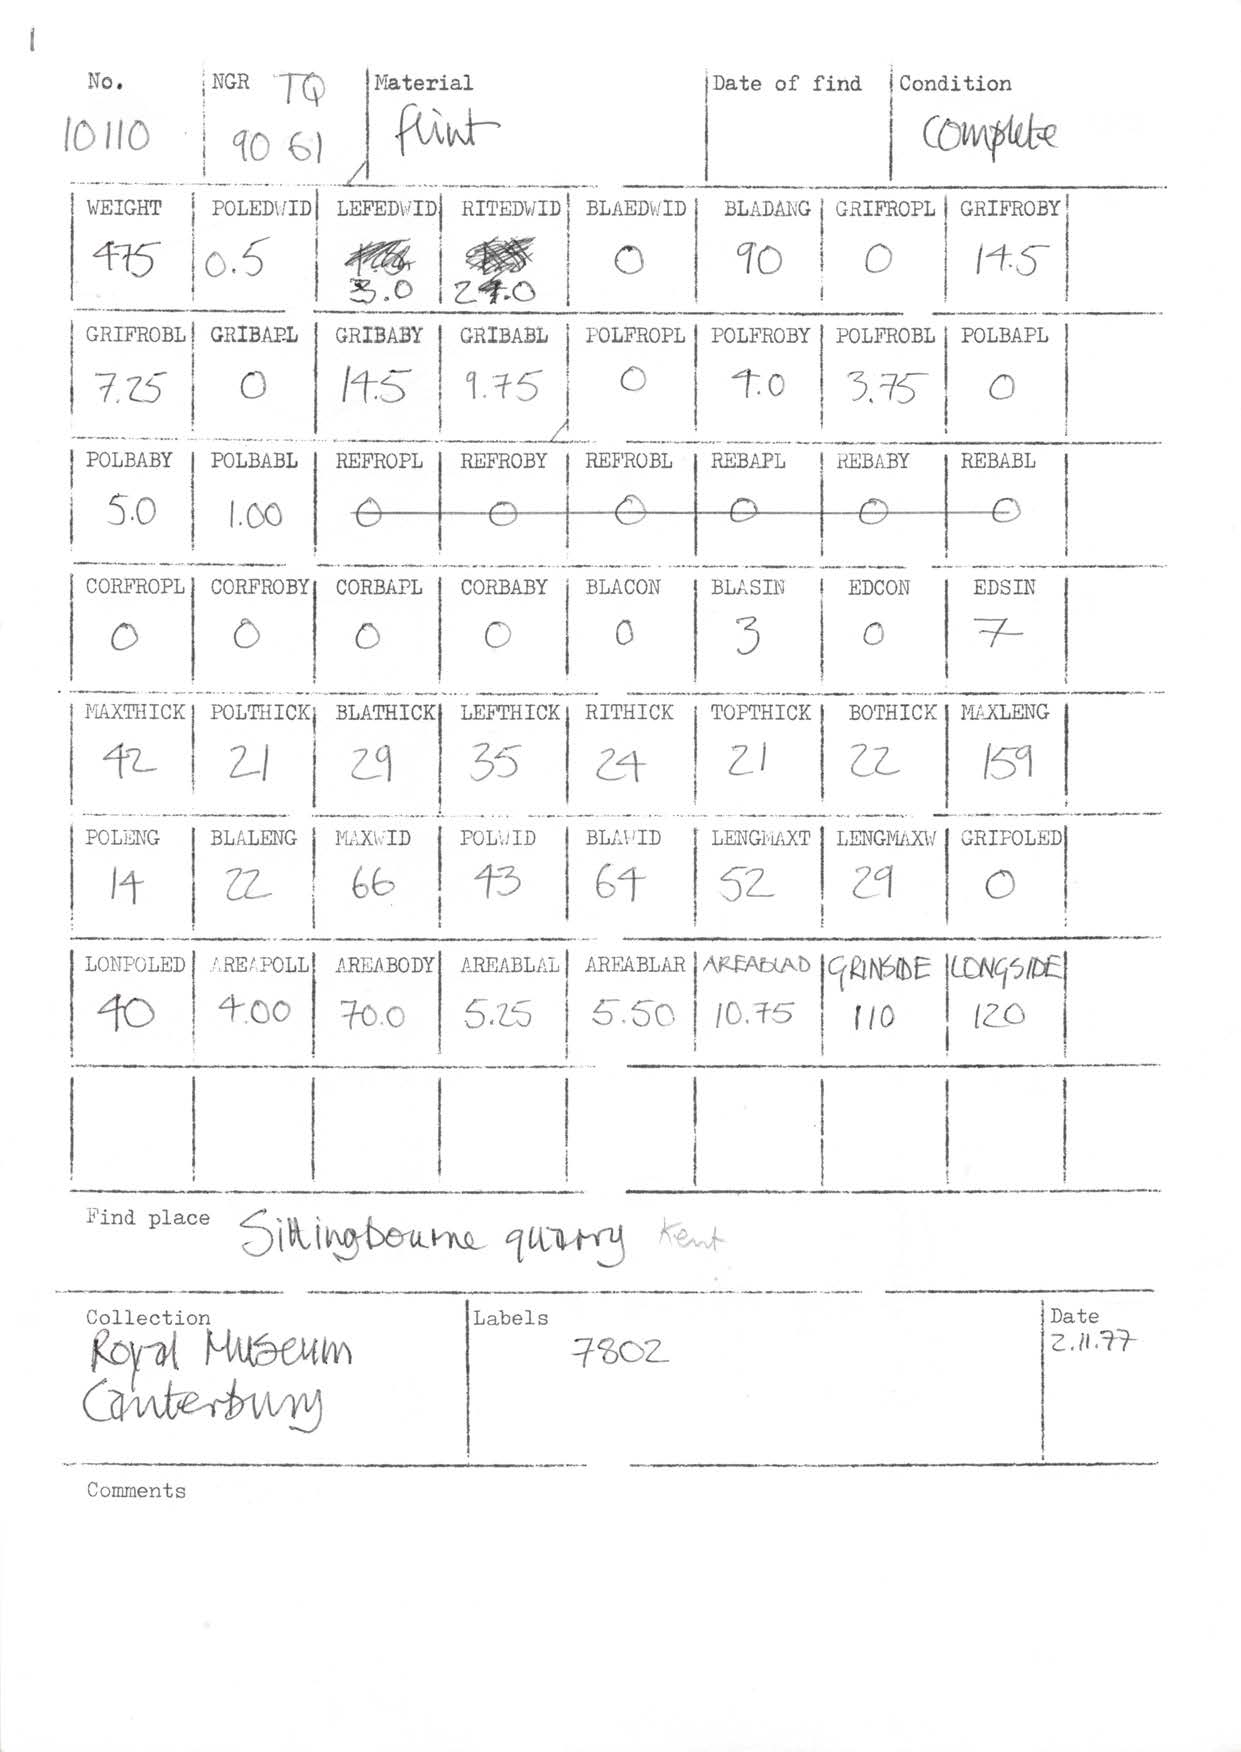 1
No. NGR TQ Material Date of find Condition
10110 90 61 flint complete
WEIGHT POLEDWID LEFEDWID RITEDWID BLAEDWID BLADANG GRIFROPL GRIFROBY
475 0.5 3.0 0 90 0 14.5
GRIFROBL GRIBAPL GRIBABY GRIBABL POLFROPL POLFROBY POLFROBL POLBAPL
7.25 0 14.5 9.75 0 4.0 3.75 0
POLBABY POLBABL REFROPL REFROBY REFROBL REBAPL REBABY REBABL
5.0 1.00 0 0 0 0 0 0
CORFROPL CORFROBY CORBAPL CORBABY BLACON BLASIN EDCON EDSIN
0 0 0 0 0 3 0 7
MAXTHICK POLTHICK BLATHICK LEFTHICK RITHICK TOPTHICK BOTHICK MAXLENG
42 21 29 35 24 21 22 159
POLENG BLALENG MAXWID POLWID BLAWID LENGMAXT LENGMAXW GRIPOLED
14 22 66 43 64 52 29 0
LONPOLED AREAPOLL AREABODY AREABLAL AREABLAR AREABLAD GRINSIDE LONGSIDE
40 4.00 70.0 5.25 5.50 10.75 110 120
Find place Sittingbourne quarry Kent
Collection Labels Date
Royal Museum 7802 2.11.77
Canterbury
Comments